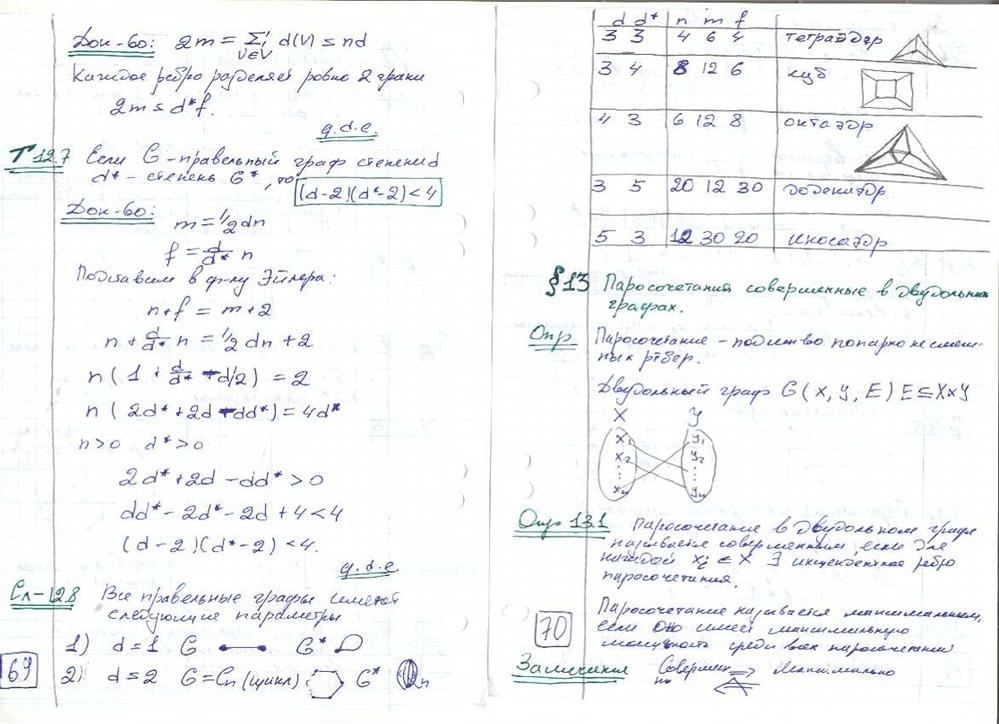 Док-во: 2m = Σ d(v) ≤ nd
v∈V
Каждое ребро разделяет ровно 2 грани
2m ≤ d*f.
q.d.e.
Т 12.7 Если G - правельный граф степени d
d* - степень G*, то (d-2)(d*-2) < 4
Док-во:
m = 1/2 dn
f = d/d* n
Подставим в ф-лу Эйлера:
n + f = m + 2
n + d/d* n = 1/2 dn + 2
n (1 + d/d* - d/2) = 2
n (2d* + 2d - dd*) = 4d*
n>0 d*>0
2d* + 2d - dd* > 0
dd* - 2d* - 2d + 4 < 4
(d-2)(d*-2) < 4.
q.d.e.
Сл-12.8 Все правельные графы имеют
следующие параметры
1) d = 1 G G*
2) d = 2 G = Cn (цикл) G* n
69
d d* n m f
3 3 4 6 4 тетраэдр
3 4 8 12 6 куб
4 3 6 12 8 октаэдр
3 5 20 12 30 додекаэдр
5 3 12 30 20 икосаэдр
§13 Паросочетания совершенные в двудольных
графах.
Опр Паросочетание - подмн-во попарно не смеж-
ных рёбер.
Двудольный граф G (X, Y, E) E ⊆ X×Y
X Y
x1 y1
x2 y2
⋮ ⋮
Опр 13.1 Паросочетание в двудольном графе
называется совершенным, если для
каждой xi ∈ X ∃ инцендентное ребро
паросочетания.
Паросочетание называется максимальным,
если оно имеет максимальную
мощность среди всех паросочетаний
70
Замечание Совершен- ⇒ Максимально
но